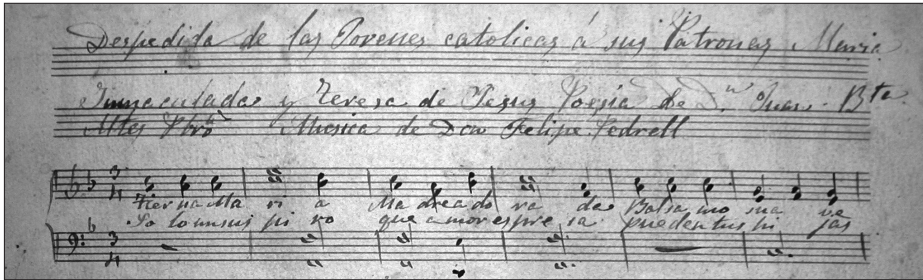 Despedida de las Jovenes catolicas á sus Patronas Maria
Inmaculada y Teresa de Jesus Poesia de D.n Juan Bta.
Altes Pbro Musica de Don Felipe Pedrell
3 4
Tier na Ma ri a Ma dre a do ra da Balsa mo sua ve
So lo un sus pi ro que a mor es pre sa pueden tus hi jas
3 4